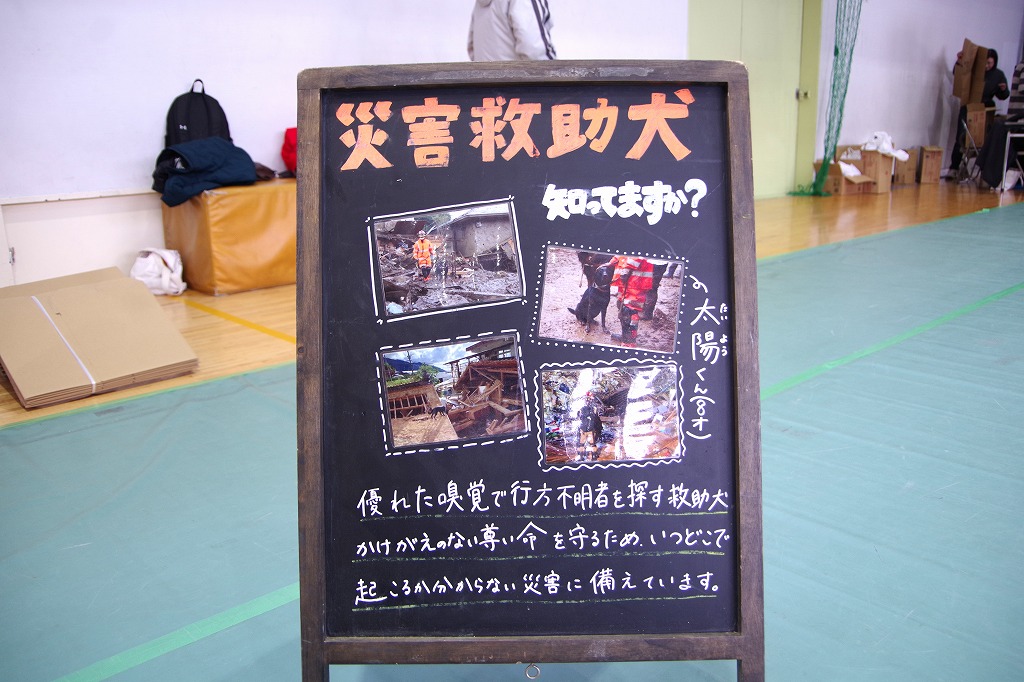 災害救助犬
知ってますか?
太陽くん(8才)
たいよう
優れた嗅覚で行方不明者を探す救助犬
かけがえのない尊い命を守るため、いつどこで
起こるか分からない災害に備えています。